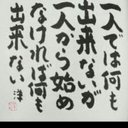 一人では何も
出来ないが
一人から始め
なければ何も
出来ない 洋